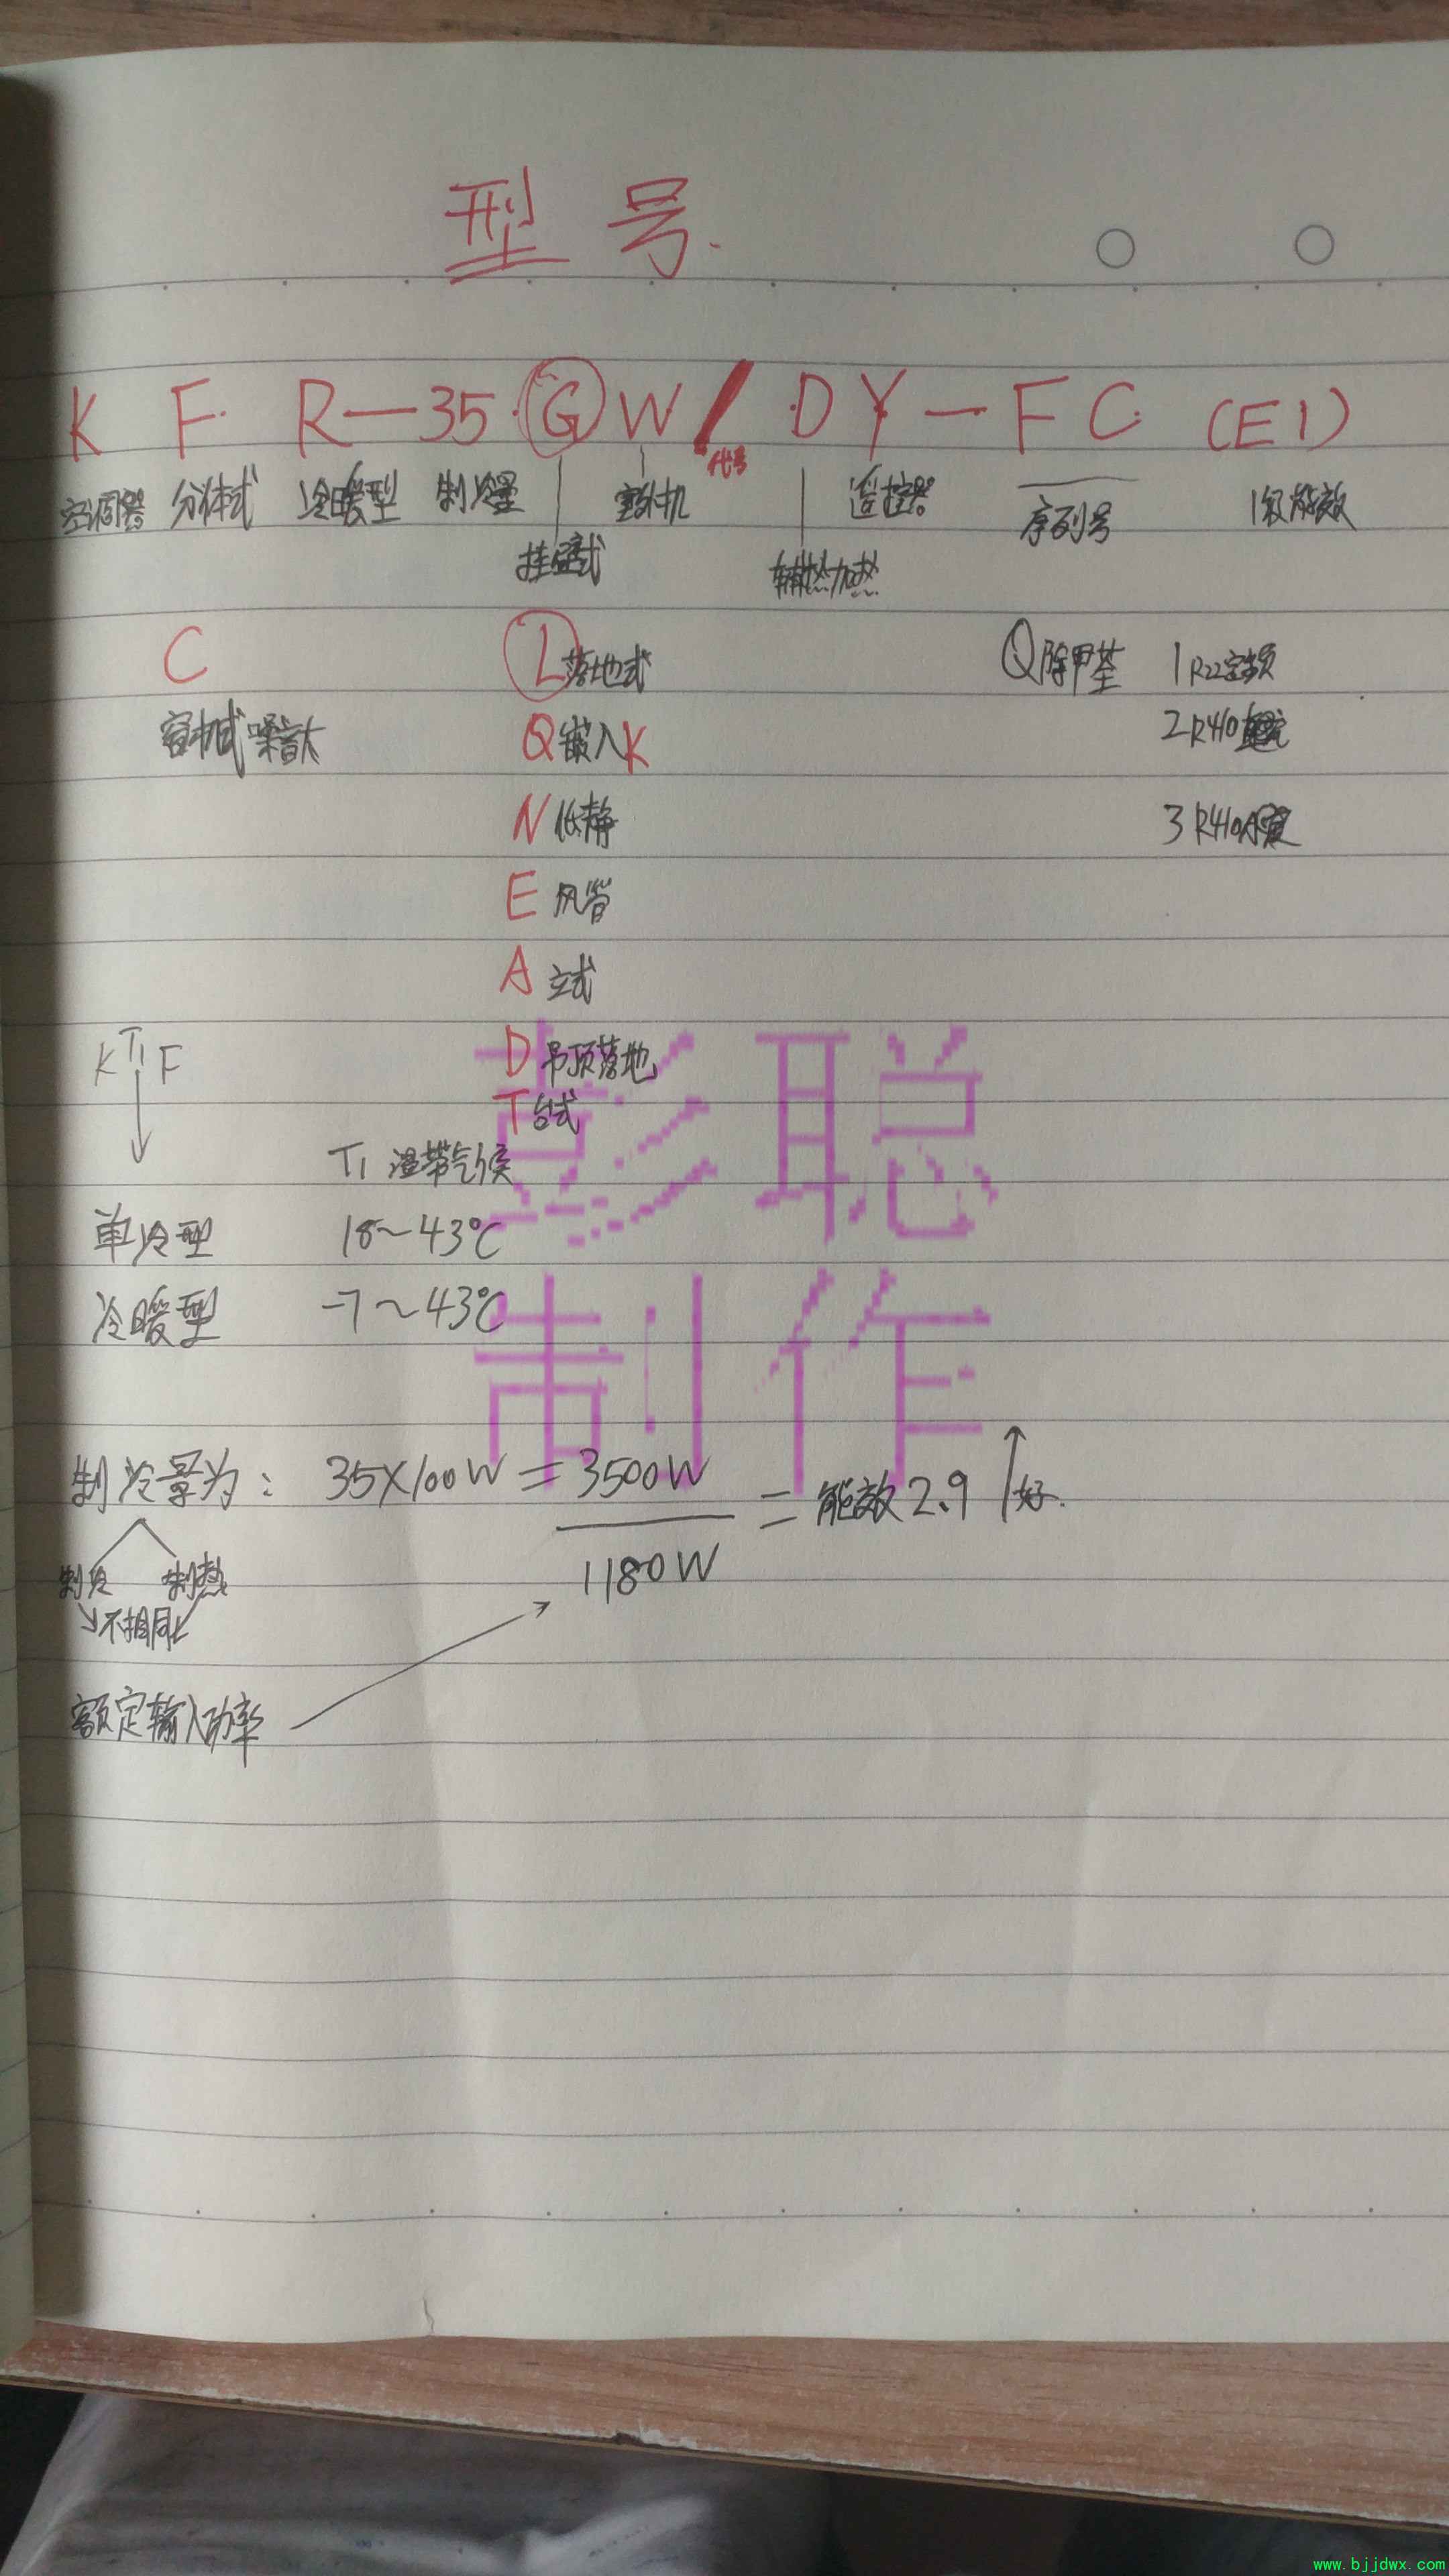 型号.
K F R—35 G W / DY—FC (E1)
代号
空调器 分体式 冷暖型 制冷量 室外机 遥控器 序列号 1级能效
挂壁式 辅热加热
C L落地式 Q除甲荃 1 R22定频
窗机式 噪音大 Q嵌入K 2 R410
N低静 3 R410A
E风管
A立式
K T1 F D吊顶落地
T台式
T1 温带气候
单冷型 18~43℃
冷暖型 -7~43℃
彭聪
制作
制冷量为: 35X100W=3500W = 能效2.9 好.
1180W
制冷 制热
不相同
额定输入功率
www.bjjdwx.com